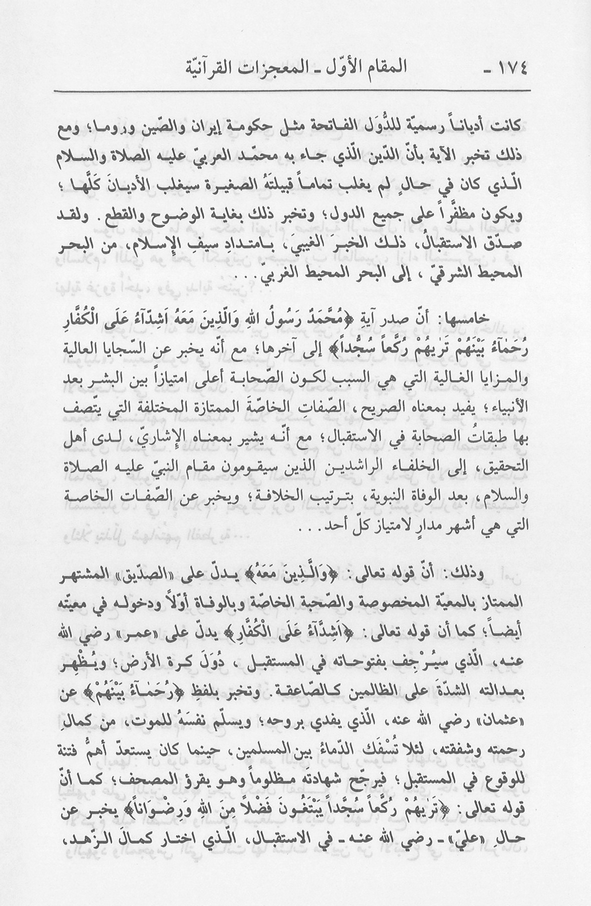 ١٧٤ - المقام الأوّل ـ المعجزات القرآنيّة
كانت أدياناً رسميّة للدُّوَل الفاتحة مثل حكومة إيران والصّين وروما؛ ومع
ذلك تخبر الآية بأنّ الدّين الّذي جاء به محمّد العربيّ عليه الصلاة والسلام
الّذي كان في حالٍ لم يغلب تماماً قبيلتَهُ الصغيرة سيغلب الأديانَ كلَّها ؛
ويكون مظفَّراً على جميع الدول؛ وتخبر ذلك بغاية الوضوح والقطع. ولقد
صدّق الاستقبالُ، ذلك الخبرَ الغيبيَ، بامتدادِ سيفِ الإسلام، من البحر
المحيط الشرقيّ ، إلى البحر المحيط الغربيّ...
خامسها: أنّ صدر آيةِ ﴿مُحَمَّدٌ رَسُولُ اللهِ وَالَّذِينَ مَعَهُ اَشِدَّآءُ عَلَى الْكُفَّارِ
رُحَمَآءُ بَيْنَهُمْ تَرٰيهُمْ رُكَّعاً سُجَّداً﴾ إلى آخرها؛ مع أنّه يخبر عن السّجايا العالية
والمـزايا الغـالية التي هـي السبب لكـون الصّحابـة أعلى امتيازاً بين البشـر بعد
الأنبياء ؛ يفيد بمعناه الصريح، الصّفاتِ الخاصّةَ الممتازة المختلفة التي يتّصف
بها طبقاتُ الصحابة في الاستقبال؛ مع أنّـه يشير بمعنـاه الإشاريّ، لـدى أهل
التحقيق، إلى الخلفاء الراشدين الذين سيقومون مقام النبي عليـه الصـلاة
والسلام، بعد الوفاة النبوية، بترتيب الخلافة؛ ويخبر عن الصّفات الخاصة
التي هي أشهر مدارٍ لامتياز كلّ أحد...
وذلك: أنّ قوله تعالى: ﴿وَالَّذِينَ مَعَهُ﴾ يدلّ على «الصدّيق» المشتهر
الممتاز بالمعيّة المخصوصة والصّحبة الخاصّة وبالوفاة أوّلاً ودخوله في معيّته
أيضاً؛ كما أن قوله تعالى: ﴿اَشِدَّآءُ عَلَى الْكُفَّارِ﴾ يدلّ على «عمر» رضي الله
عنه، الّذي سيُرْجِف بفتوحاته في المستقبل ، دُوَلَ كرة الأرض؛ ويـظْهِر
بعدالته الشدّةَ على الظالمين كالصّاعقة. وتخبر بلفظِ ﴿رُحَمَـآءُ بَيْنَهُمْ﴾ عن
«عثمان» رضي الله عنه، الّذي يفدي بروحه؛ ويسلّم نفسَهُ للموت، من كمالِ
رحمته وشفقته، لئلا تُسْفَك الدّماءُ بين المسلمين، حينما كان يستعدّ أهمُّ فتنة
للوقوع في المستقبل؛ فيرجّح شهادتَه مظلوماً وهو يقرؤ المصحف؛ كما أنّ
قوله تعالى: ﴿تَرٰيهُمْ رُكَّعاً سُجَّداً يَبْتَغُونَ فَضْلاً مِنَ اللهِ وَرِضْوَاناً﴾ يخبر عن
حالِ «عليّ» ـ رضي الله عنه ـ في الاستقبال، الّذي اختار كمالَ الزّهد،